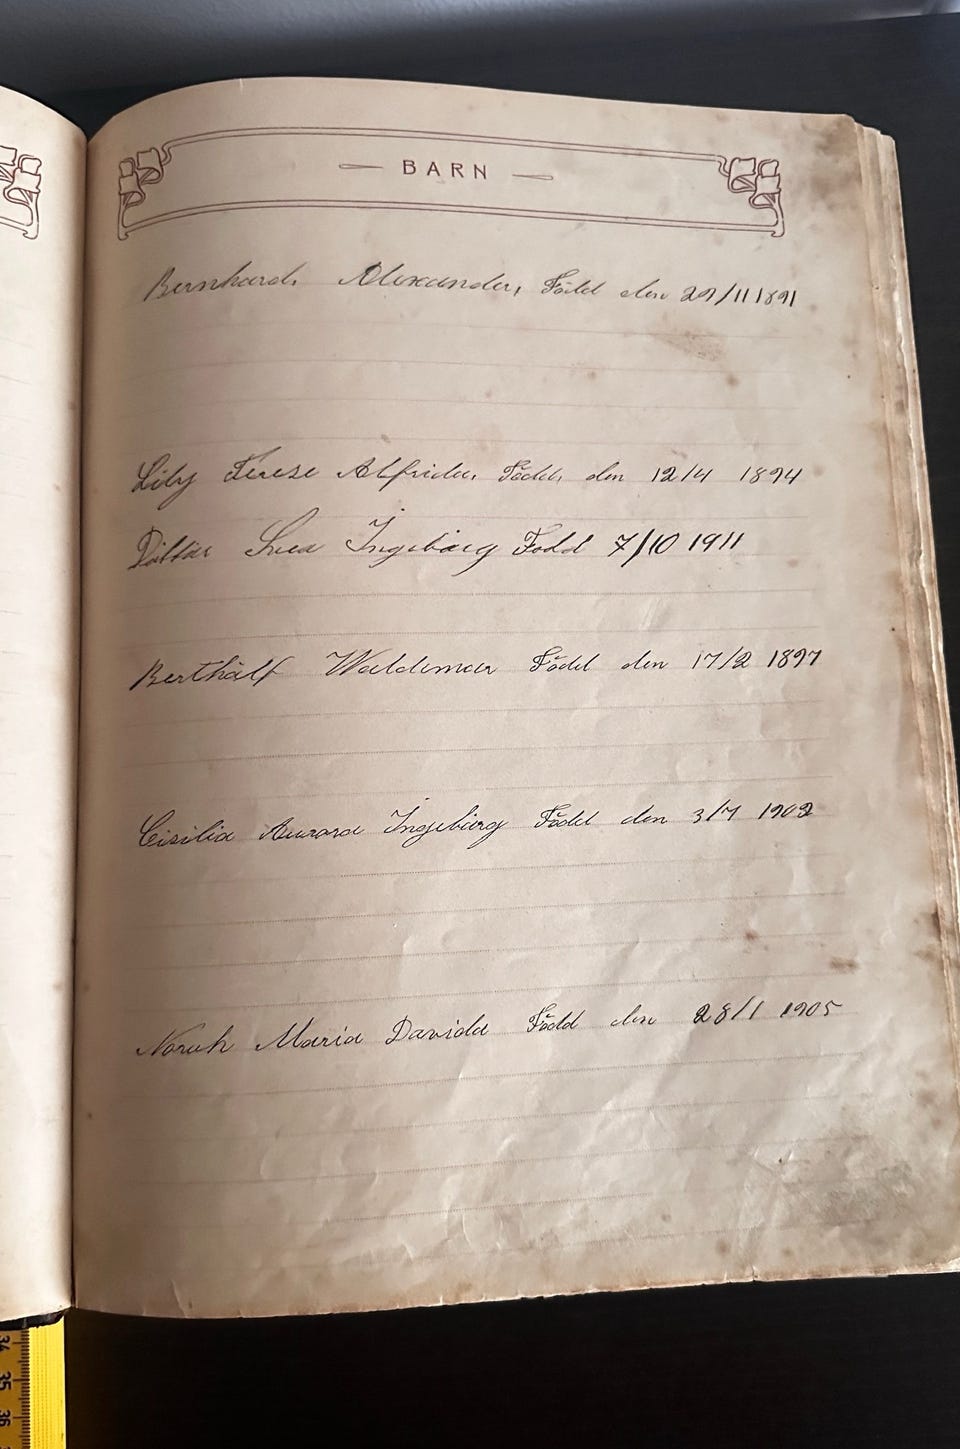 BARN
Bernhard. Alexander, Född den 29/11 1891
Lily Terese Alfrida. Född, den 12/4 1894
Svea Ingeborg Född 7/10 1911
Berthålf Waldemar Född den 17/2 1897
Cisilia Aurora Ingeborg Född den 3/7 1902
Norah Maria Davida Född den 28/1 1905
34
35
36